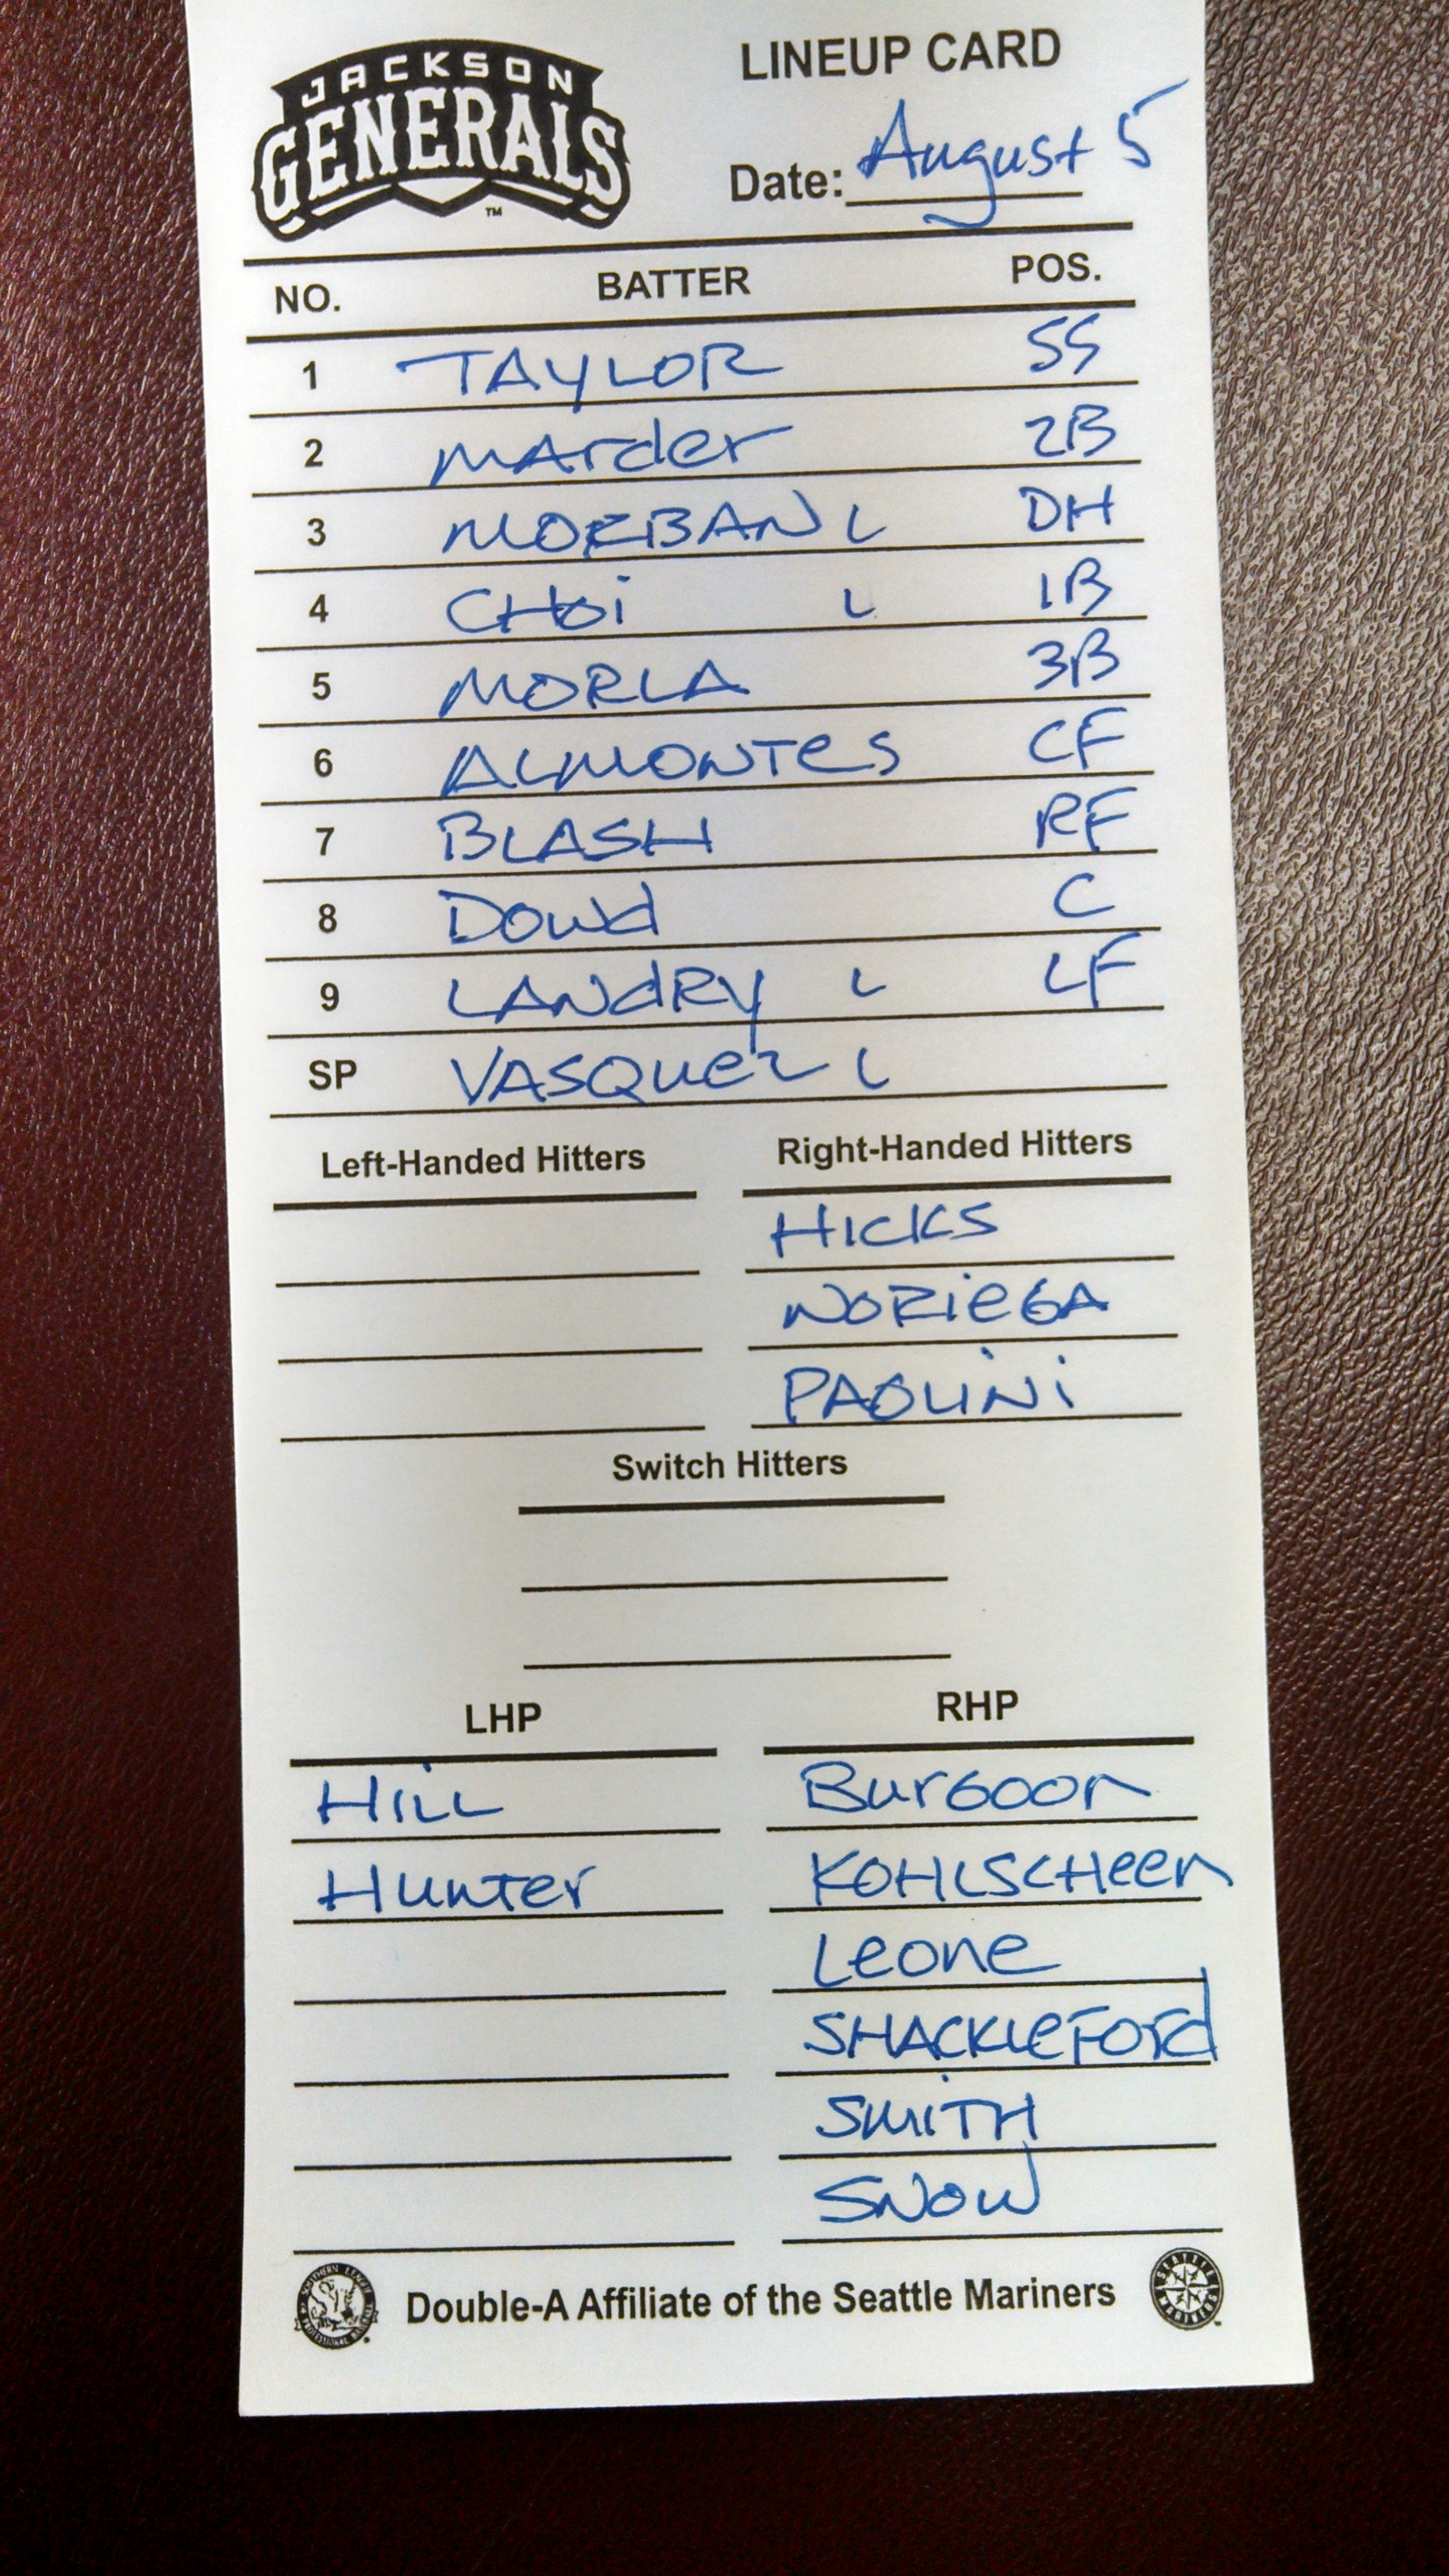 JACKSON
GENERALS
TM
LINEUP CARD
Date: August 5
NO. BATTER POS.
1 TAYLOR SS
2 MArder 2B
3 MORBAN L DH
4 CHoi L 1B
5 MORLA 3B
6 ALMONTeS CF
7 BLASH RF
8 Dowd C
9 LANdRy L LF
SP VASQuez L
Left-Handed Hitters Right-Handed Hitters
HICKS
NORieGA
PAOLiNi
Switch Hitters
LHP RHP
HiLL BurGoon
HuNTer KOHLSCHeen
Leone
SHACKLeFord
SMiTH
SNOW
Double-A Affiliate of the Seattle Mariners
SEATTLE MARINERS